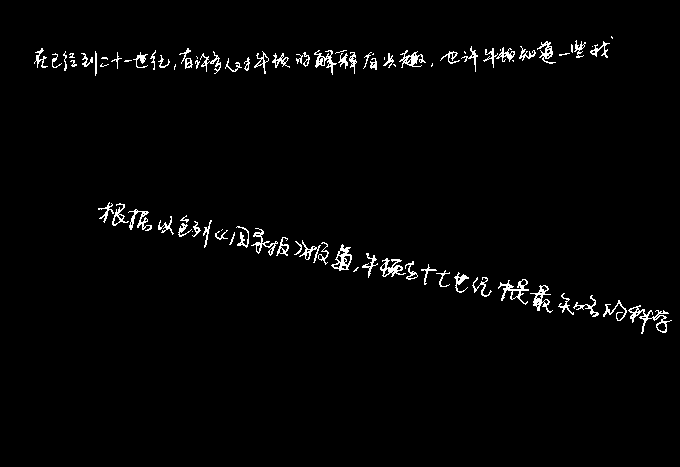 在已经到二十一世纪,有许多人对牛顿的解释有兴趣,也许牛顿知道一些我
根据以色列《国家报》报道,牛顿在十七世纪中是最出名的科学